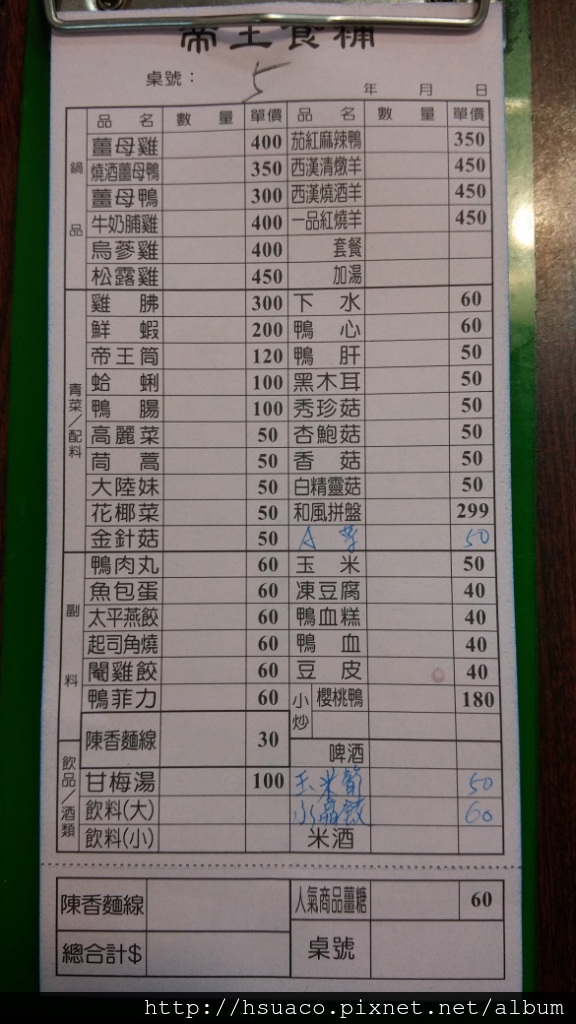 帝王食補
桌號： 5
年 月 日
品名 數量 單價 品名 數量 單價
鍋品
薑母雞 400 茄紅麻辣鴨 350
燒酒薑母鴨 350 西漢清燉羊 450
薑母鴨 300 西漢燒酒羊 450
牛奶脯雞 400 一品紅燒羊 450
烏蔘雞 400 套餐
松露雞 450 加湯
青菜/配料
雞腨 300 下水 60
鮮蝦 200 鴨心 60
帝王筒 120 鴨肝 50
蛤蜊 100 黑木耳 50
鴨腸 100 秀珍菇 50
高麗菜 50 杏鮑菇 50
茼蒿 50 香菇 50
大陸妹 50 白精靈菇 50
花椰菜 50 和風拼盤 299
金針菇 50 A 50
副料
鴨肉丸 60 玉米 50
魚包蛋 60 凍豆腐 40
太平燕餃 60 鴨血糕 40
起司角燒 60 鴨血 40
閹雞餃 60 豆皮 40
鴨菲力 60 小炒 櫻桃鴨 180
陳香麵線 30
啤酒
飲品/酒類
甘梅湯 100 玉米筍 50
飲料(大) 水晶餃 60
飲料(小) 米酒
陳香麵線 人氣商品薑糖 60
總合計$ 桌號
http://hsuaco.pixnet.net/album